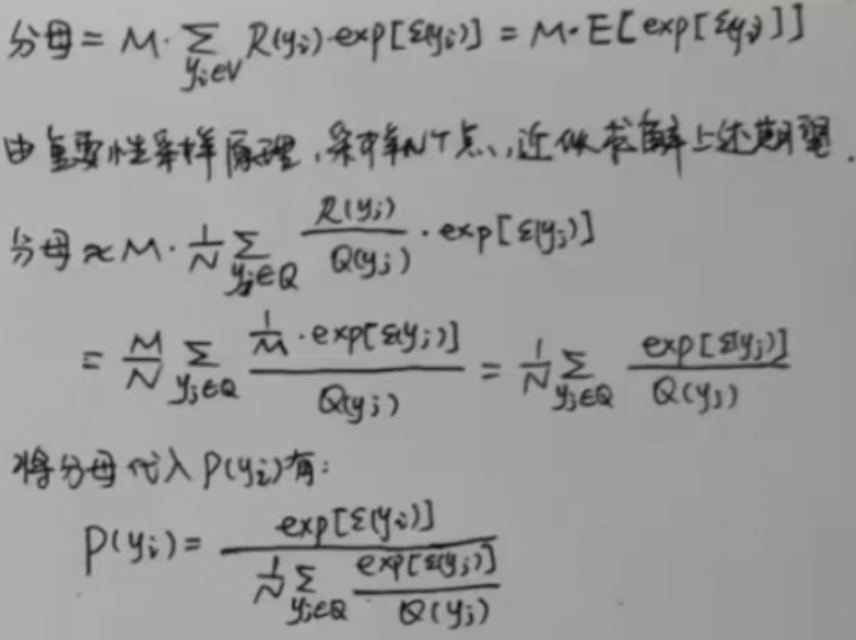 分母 = M · ∑_{y_i∈V} R(y_i) · exp[ε(y_i)] = M · E[exp[ε(y_i)]]
由重要性采样原理,采样N个点,近似求解上述期望.
分母 ≈ M · 1/N ∑_{y_j∈Q} R(y_j)/Q(y_j) · exp[ε(y_j)]
= M/N ∑_{y_j∈Q} (1/M · exp[ε(y_j)])/Q(y_j) = 1/N ∑_{y_j∈Q} exp[ε(y_j)]/Q(y_j)
将分母代入 P(y_i)有:
P(y_i) = exp[ε(y_i)] / (1/N ∑_{y_j∈Q} exp[ε(y_j)]/Q(y_j))